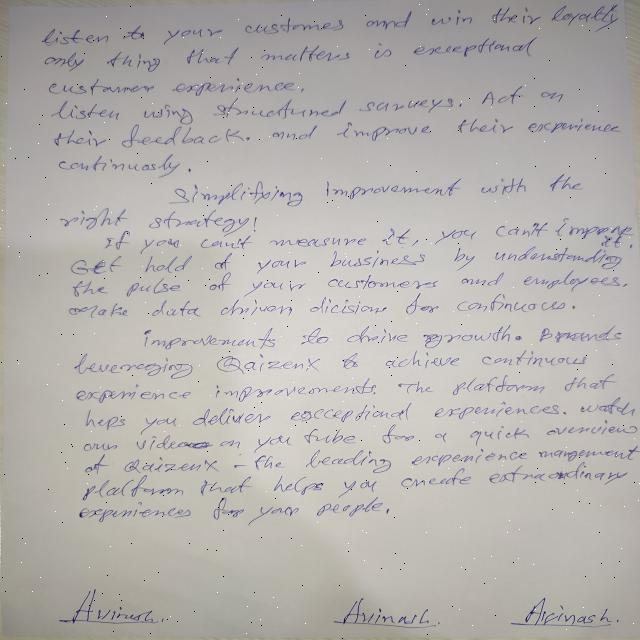 listen to your customes and win their loyality
only thing that matters is exceptional
customer experience.
listen using structured surveys. Act on
their feedback. and improve their experience
continuosly.
Simplifying improvement with the
right strategy!
If you can't measure it, you can't improve it.
Get hold of your bussiness by understanding
the pulse of your customers and employees.
Make data driven dicisions for continuous.
improvements to drive growth. Brands
leveraging QaizenX to achieve continuous
experience improvements. The platform that
heps you deliver exceptional experiences. watch
our video on you tube for a quick overview
of QaizenX - the leading experience mangement
platform that helps you create extraordinary
experiences for your people.
Avinash. Avinash. Avinash.